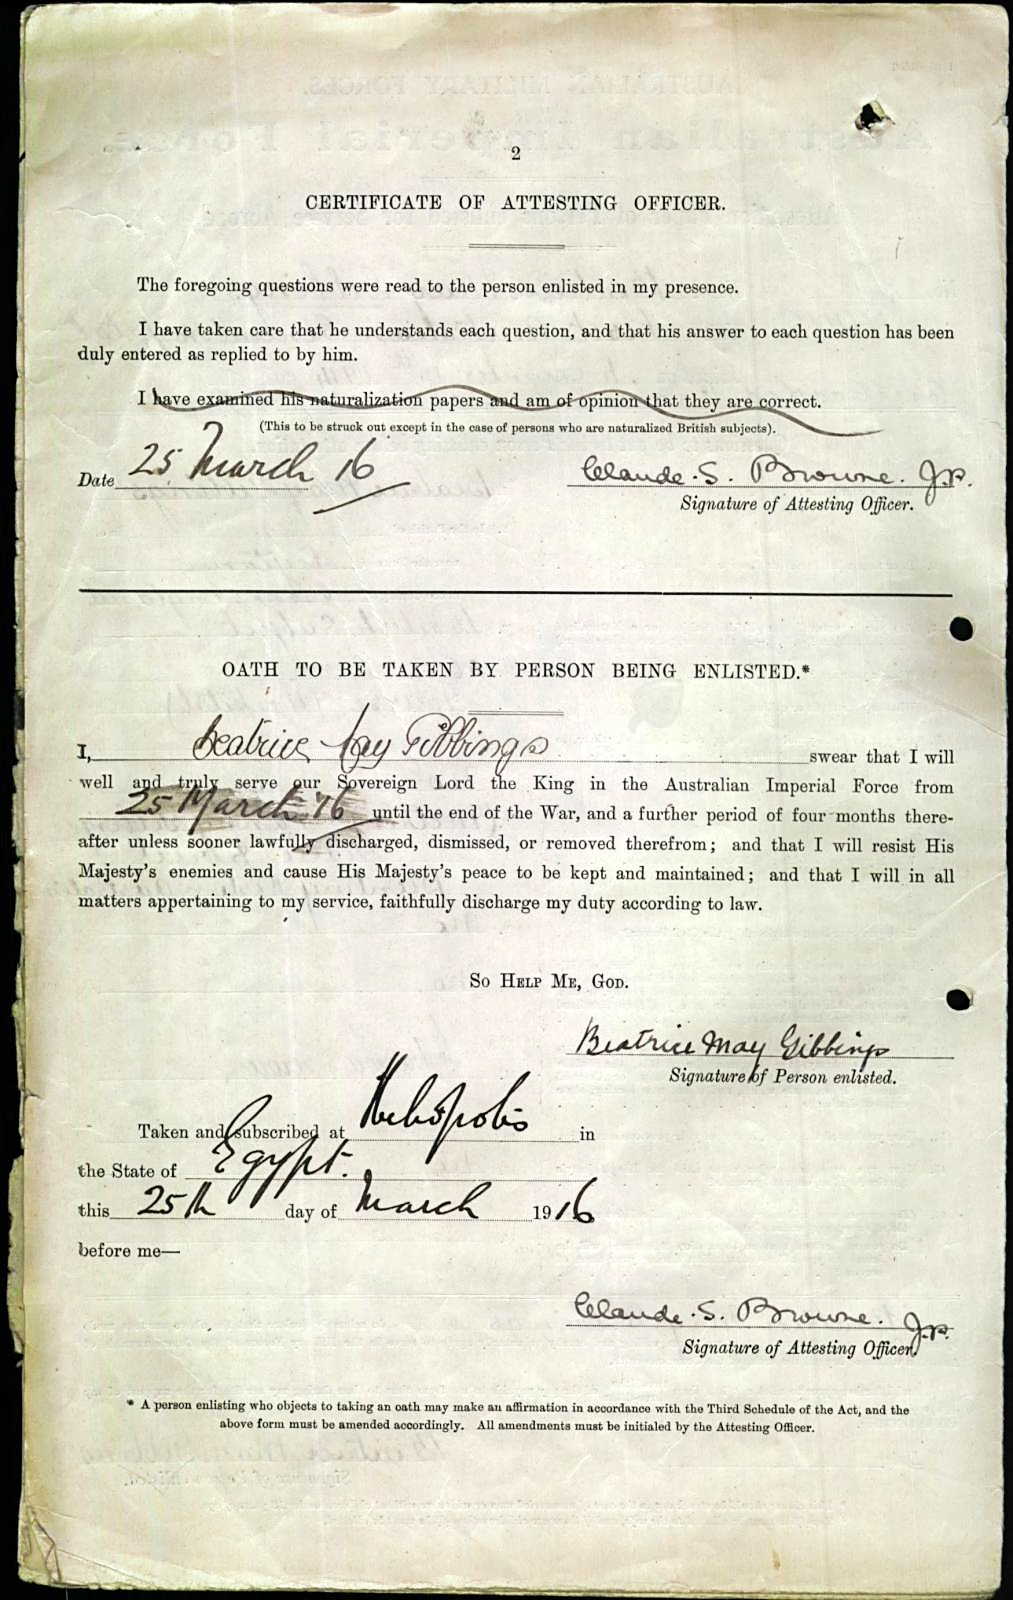 2
CERTIFICATE OF ATTESTING OFFICER.
The foregoing questions were read to the person enlisted in my presence.
I have taken care that he understands each question, and that his answer to each question has been
duly entered as replied to by him.
I have examined his naturalization papers and am of opinion that they are correct.
(This to be struck out except in the case of persons who are naturalized British subjects).
Date 25 March 16 Claude. S. Browne. J.P.
Signature of Attesting Officer.
OATH TO BE TAKEN BY PERSON BEING ENLISTED.*
I, Beatrice May Gibbings swear that I will
well and truly serve our Sovereign Lord the King in the Australian Imperial Force from
25 March '16 until the end of the War, and a further period of four months there-
after unless sooner lawfully discharged, dismissed, or removed therefrom; and that I will resist His
Majesty's enemies and cause His Majesty's peace to be kept and maintained; and that I will in all
matters appertaining to my service, faithfully discharge my duty according to law.
So Help Me, God.
Beatrice May Gibbings
Signature of Person enlisted.
Taken and subscribed at Heliopolis in
the State of Egypt.
this 25th day of March 1916
before me—
Claude. S. Browne. J.P.
Signature of Attesting Officer.
* A person enlisting who objects to taking an oath may make an affirmation in accordance with the Third Schedule of the Act, and the
above form must be amended accordingly. All amendments must be initialed by the Attesting Officer.